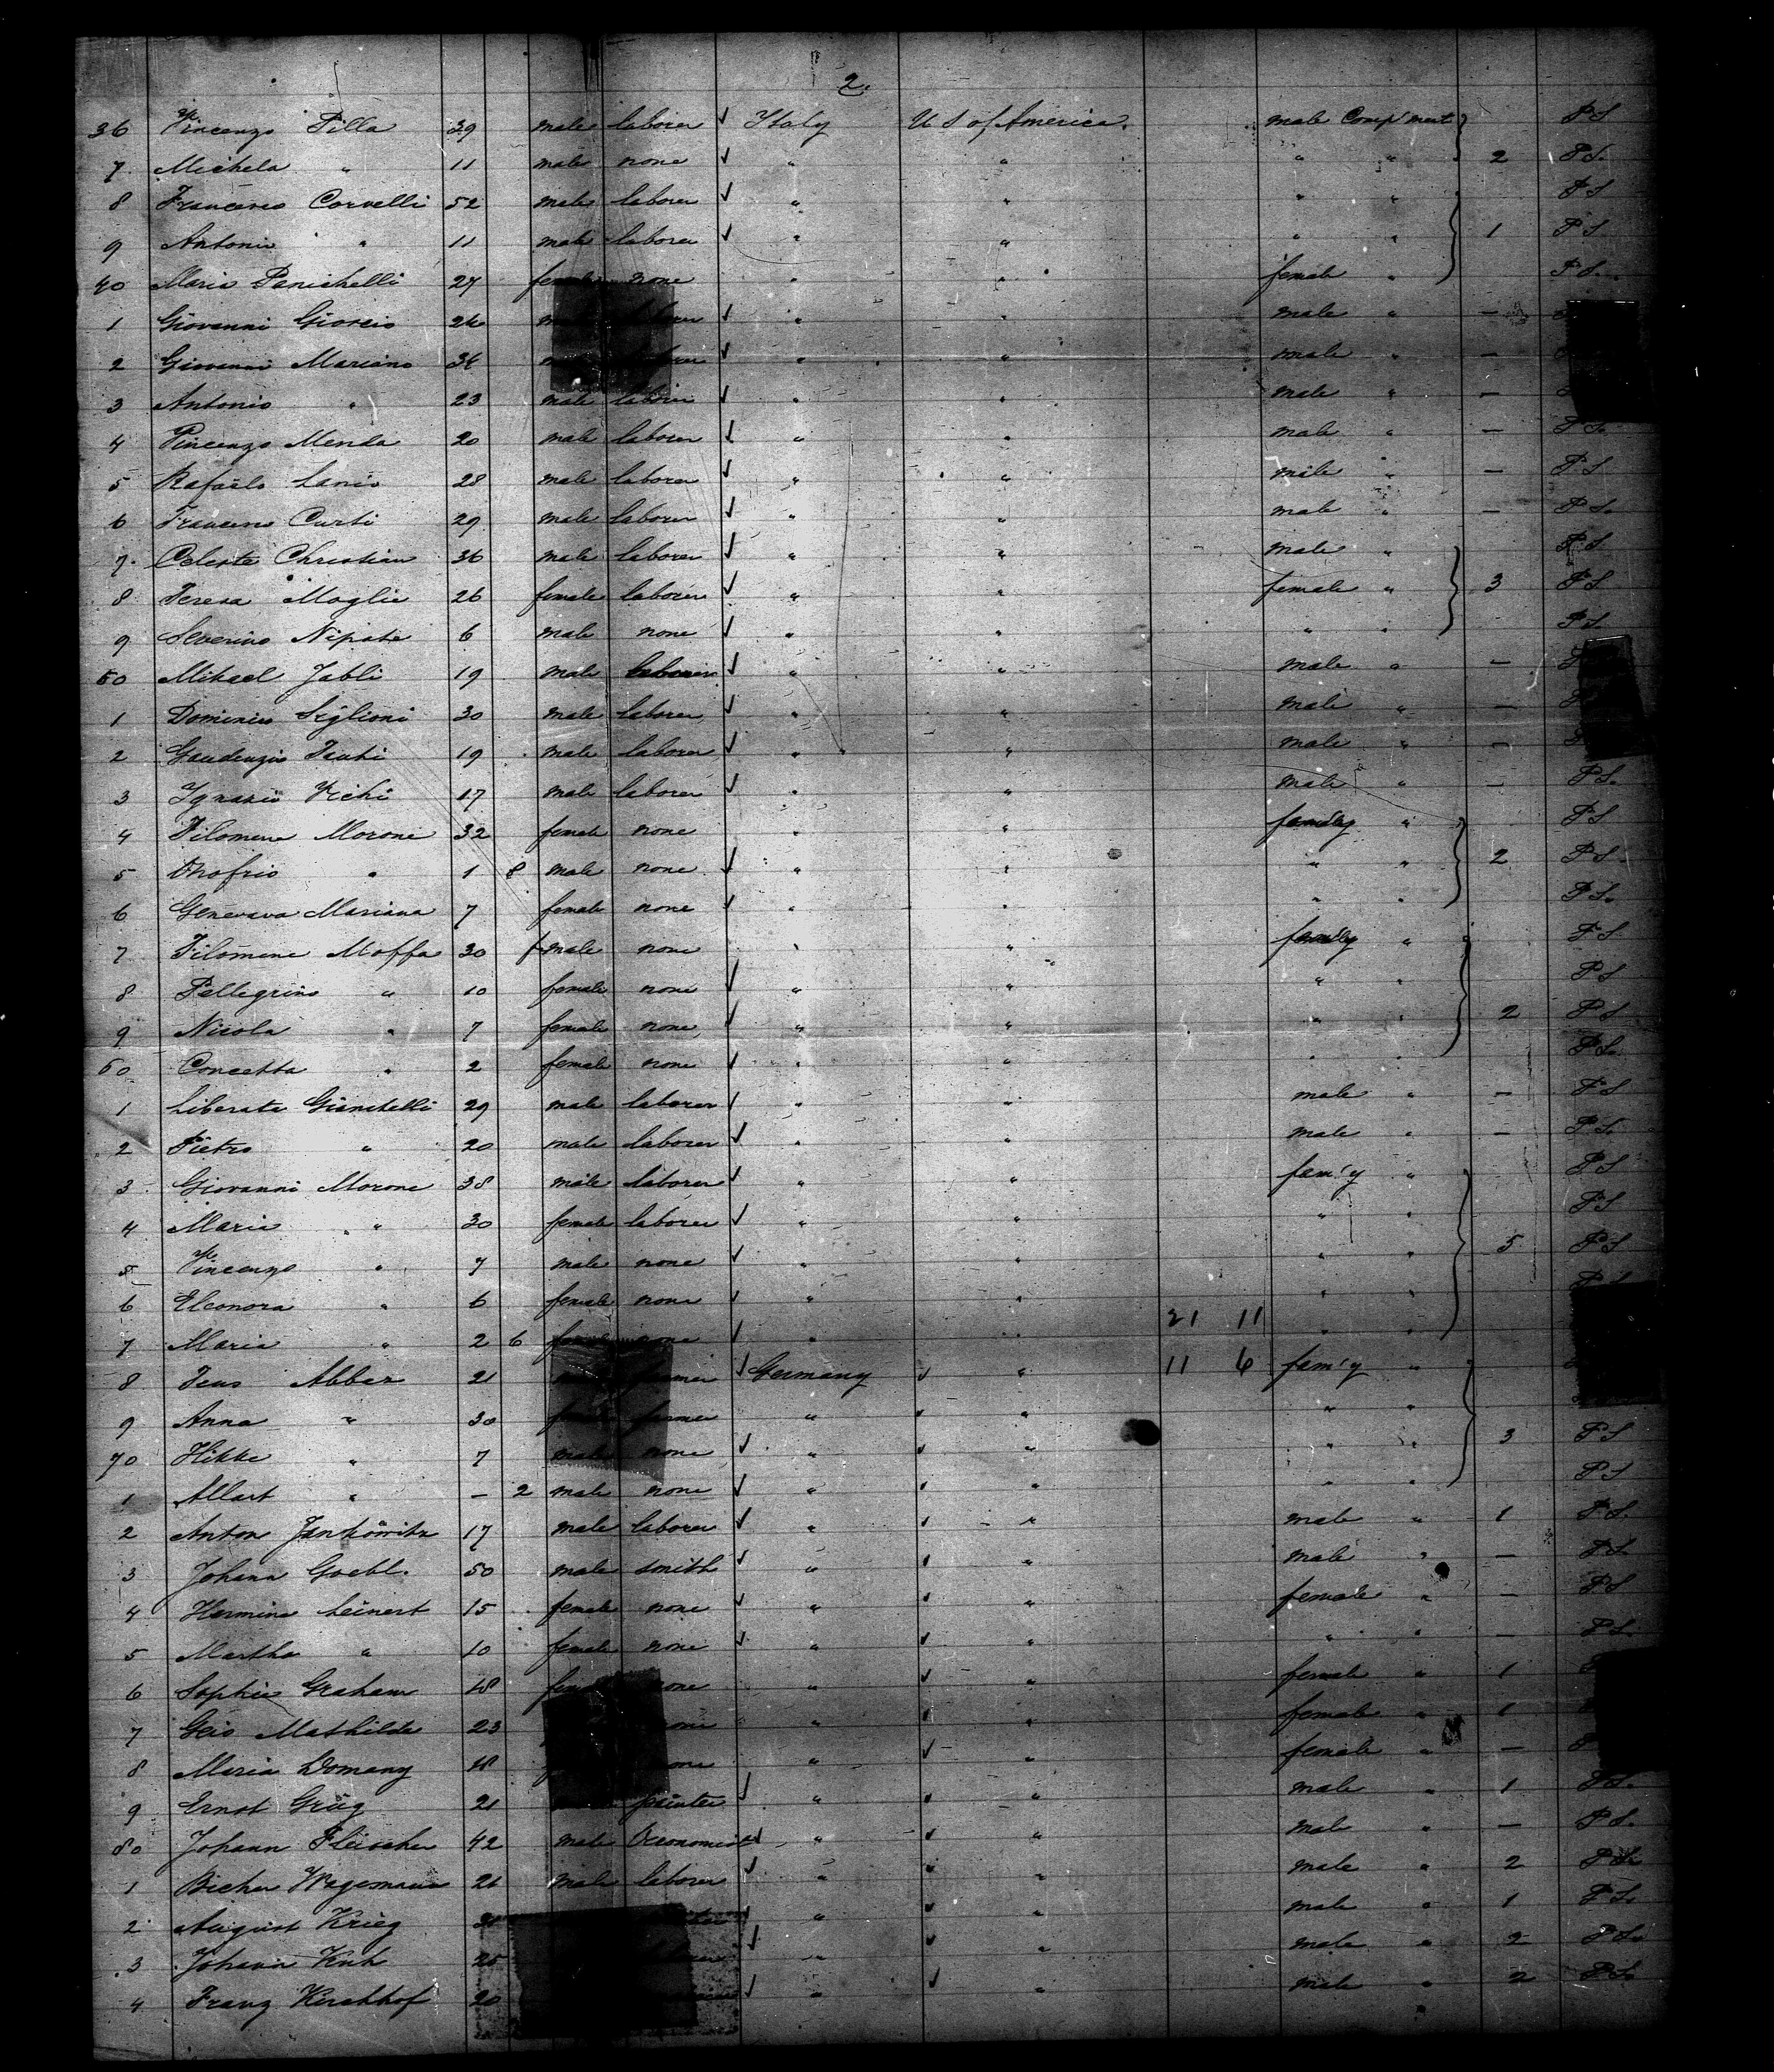 2.
36 Vincenzo Pilla 39 male laborer ✓ Italy U S of America. male Comp'ment P S
7 Michela " 11 male none ✓ " " " " 2 P S.
8 Francesco Corvelli 52 male laborer ✓ " " " " P S
9 Antonio " 11 male laborer ✓ " " " " 1 P S
40 Maria Panichelli 27 female none " " female " P S.
1 Giovanni Giorcio 26 laborer ✓ " " male " —
2 Giovanni Mariano 36 laborer ✓ " " male " —
3 Antonio " 23 male laborer ✓ " " male " —
4 Vincenzo Menda 20 male laborer ✓ " " male " — P S.
5 Rafaelo Lanio 28 male laborer ✓ " " male " — P S
6 Francesco Curti 29 male laborer ✓ " " male " — P S.
7. Celeste Christian 36 male laborer ✓ " " male " P S
8 Teresa Moglie 26 female laborer ✓ " " female " 3 P S
9 Severino Nipote 6 male none ✓ " " " " P S.
50 Mikael Jabli 19 male laborer ✓ " " male " —
1 Dominico Siglioni 30 male laborer ✓ " " male " —
2 Gaudenzio Tenti 19 male laborer ✓ " " male " —
3 Ignazio Vichi 17 male laborer ✓ " " male " — P S.
4 Filomena Morone 32 female none " " family " P S
5 Onofrio " 1 8 male none ✓ " " " " 2 P S
6 Genevava Mariana 7 female none ✓ " " " " P S.
7 Filomene Moffa 30 female none " " family " P S
8 Pellegrino " 10 female none ✓ " " " " P S
9 Nicola " 7 female none ✓ " " " " 2 P S
60 Concetta " 2 female none ✓ " " " " P S.
1 Liberato Gianitelli 29 male laborer ✓ " " male " — P S
2 Pietro " 20 male laborer ✓ " " male " — P S.
3 Giovanni Morone 38 male laborer ✓ " " fam'y " P S
4 Maria " 30 female laborer ✓ " " " " P S
5 Vincenzo " 7 male none ✓ " " " " 5 P S
6 Eleonora " 6 female none ✓ " " " " P S
7 Maria " 2 6 female none ✓ " " 21 11 " "
8 Jens Abbar 21 farmer ✓ Germany ✓ " 11 6 fam'y "
9 Anna " 30 female farmer " ✓ " " "
70 Hikke " 7 male none ✓ " ✓ " " " 3 P S
1 Allart " — 2 male none ✓ " ✓ " " " P S
2 Anton Jankowitz 17 male laborer ✓ " ✓ " male " 1 P S.
3 Johann Goebl. 50 male smith ✓ " ✓ " male " — P S
4 Hermine Leinert 15 female none ✓ " ✓ " female " — P S
5 Martha " 10 female none ✓ " ✓ " " " — P S
6 Sophie Graham 18 female none " ✓ " female " 1
7 Geis Mathilde 23 none " ✓ " female " 1
8 Maria Domany 18 none " ✓ " female " —
9 Ernst Grüg 21 painter ✓ " ✓ " male " 1 P S.
80 Johann Fleischer 42 male Oeconomist ✓ " ✓ " male " — P S.
1 Bicher Wagemann 21 male laborer ✓ " " " male " 2 P S.
2 August Krieg ✓ " ✓ " male " 1 P S.
3 Johann Kuh 25 ✓ " ✓ " male " 2 P S.
4 Franz Kirchhof 20 ✓ " ✓ " male " 2 P S.